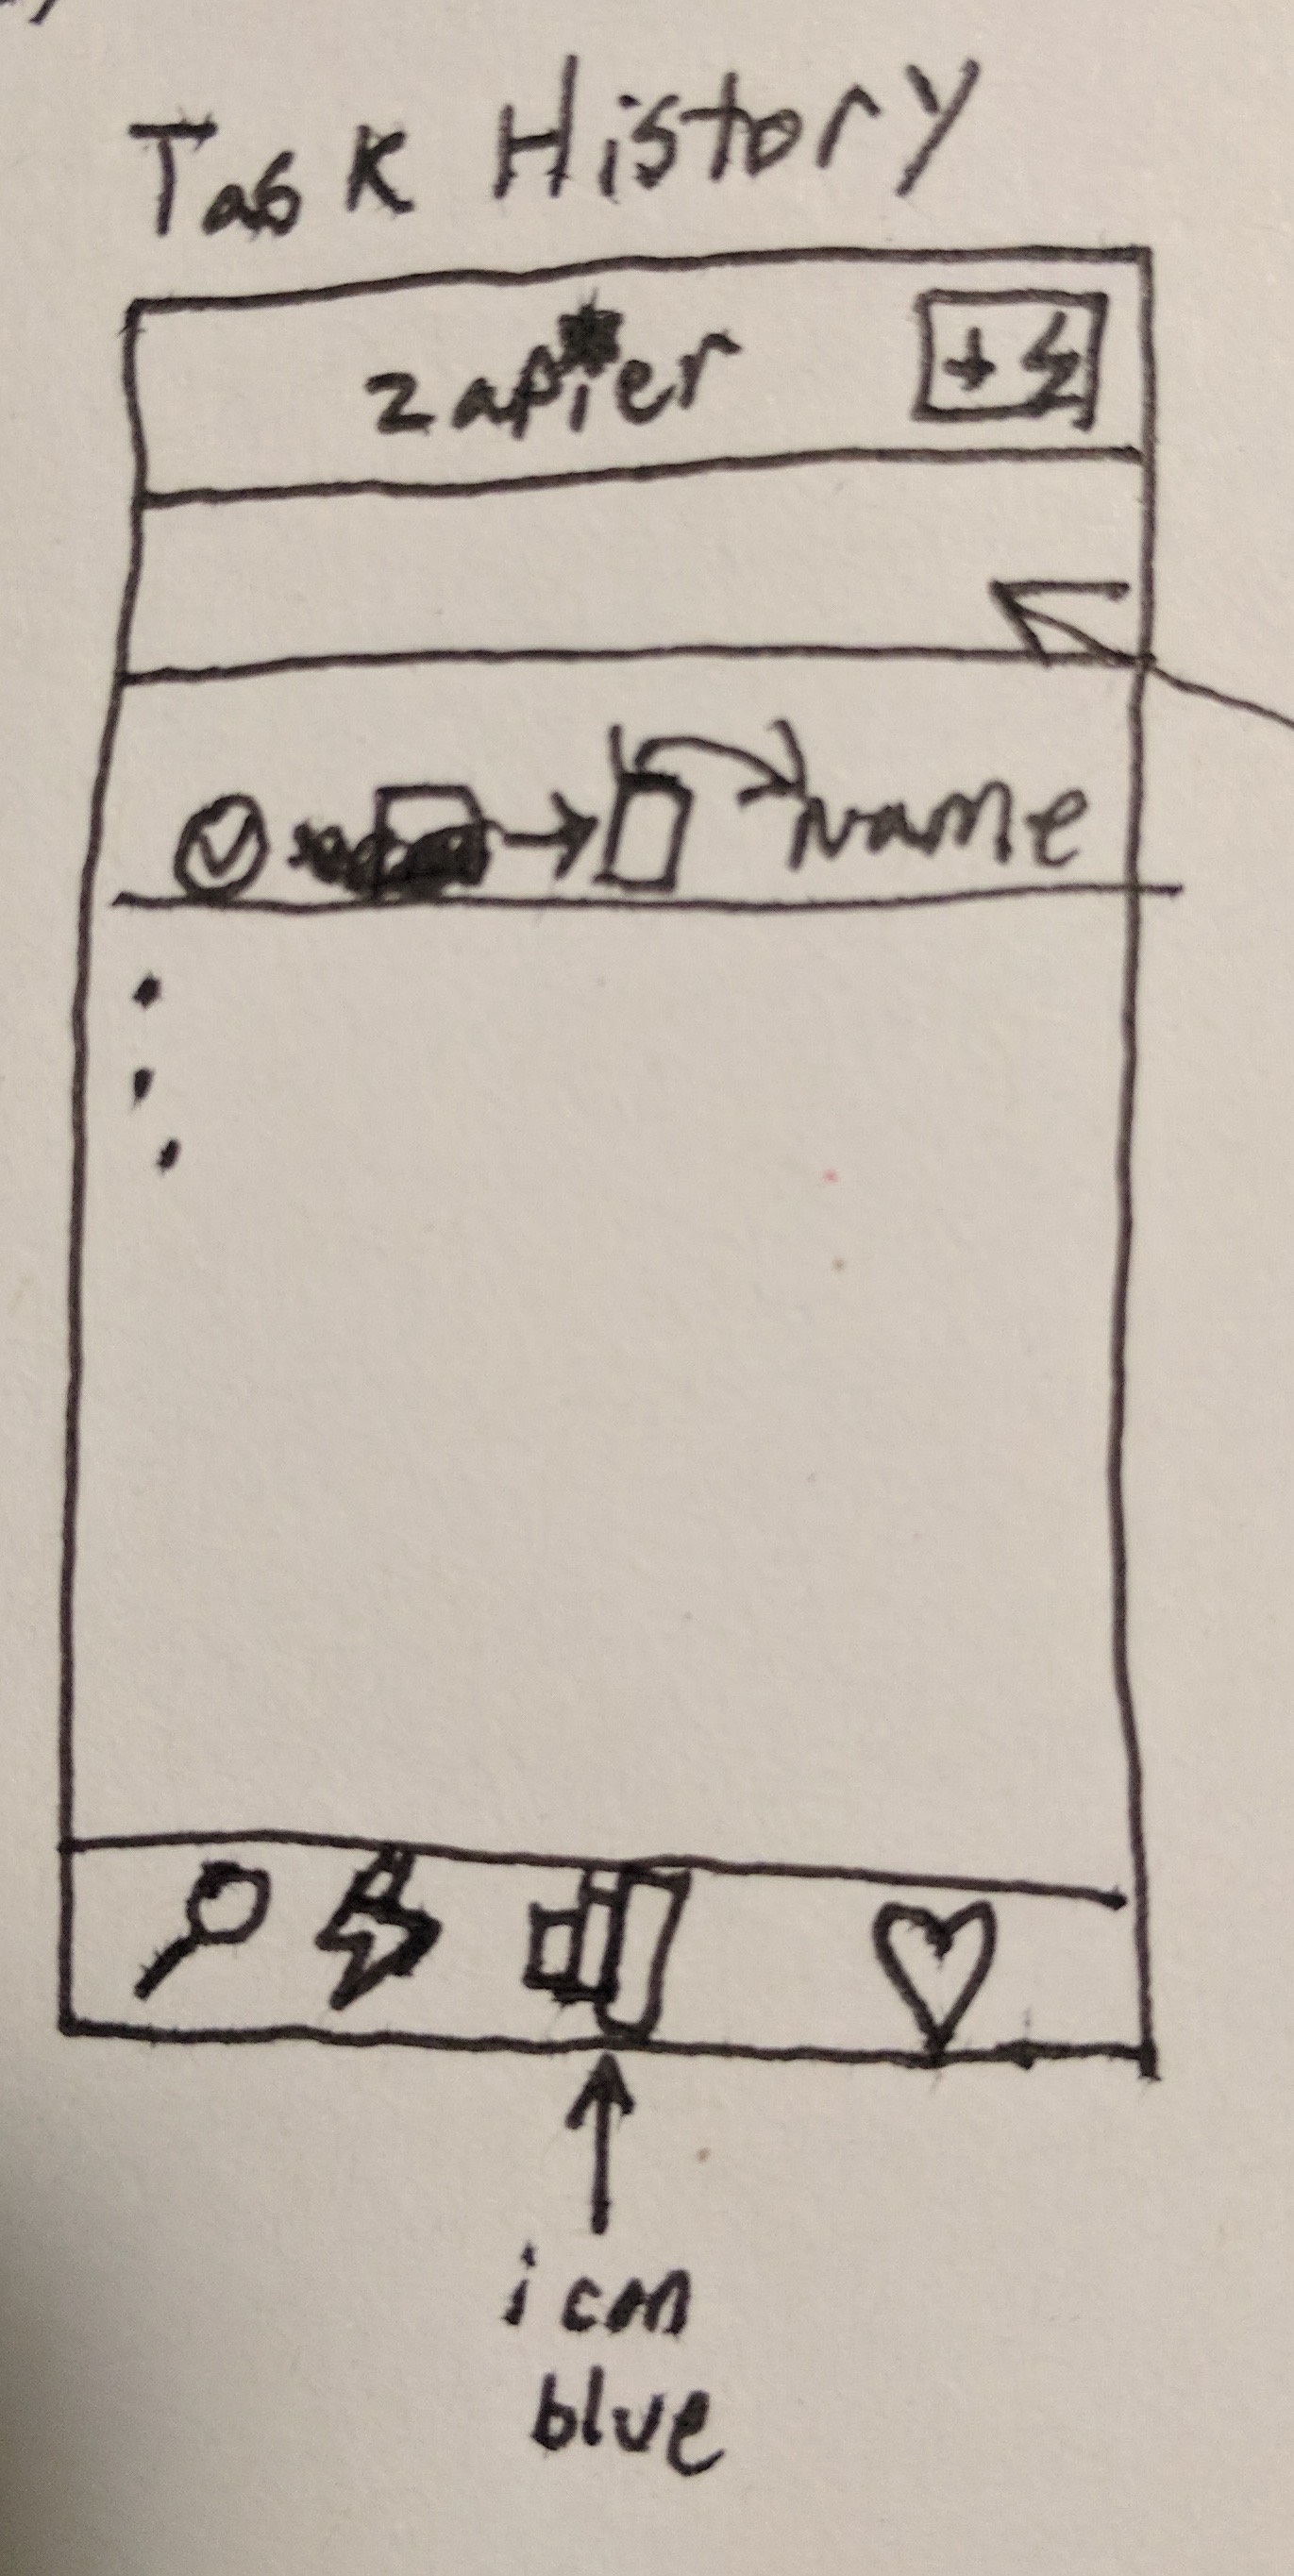 Task History
zapier
+
Name
icon
blue